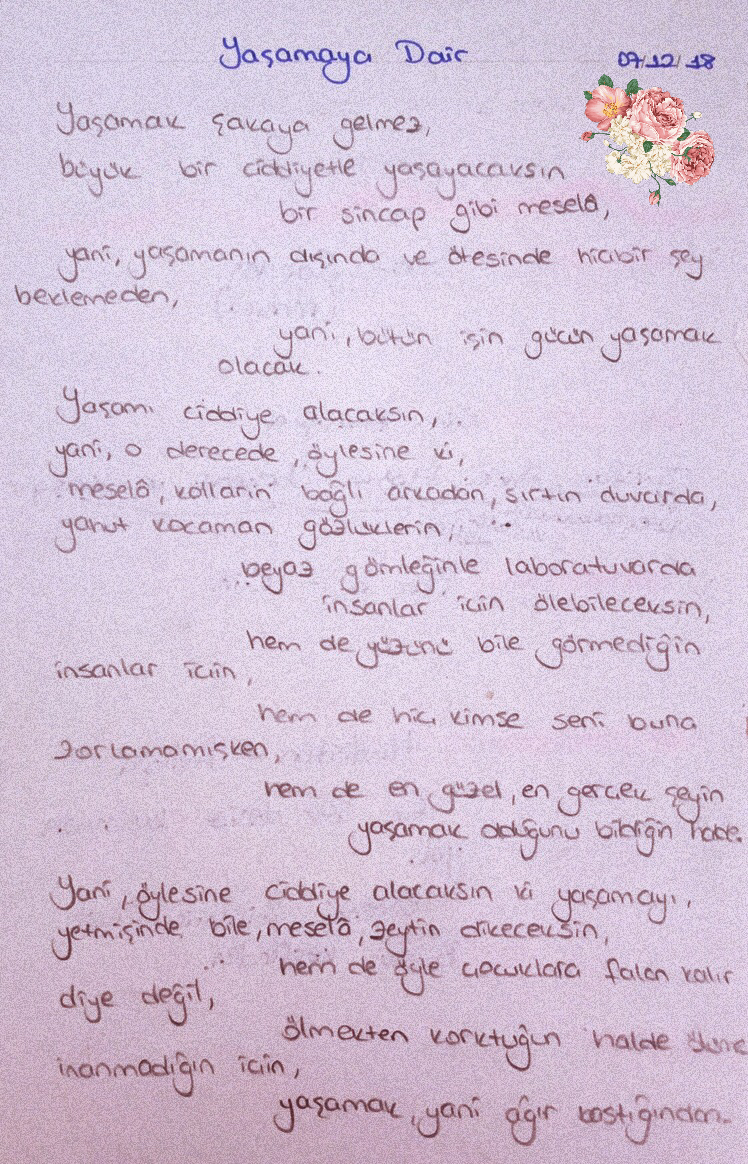 Yaşamaya Dair
07/12/18
Yaşamak şakaya gelmez,
büyük bir ciddiyetle yaşayacaksın
bir sincap gibi meselâ,
yani, yaşamanın dışında ve ötesinde hiçbir şey
beklemeden,
yani, bütün işin gücün yaşamak
olacak.
Yaşamı ciddiye alacaksın,
yani, o derecede, öylesine ki,
meselâ, kolların bağlı arkadan, sırtın duvarda,
yahut kocaman gözlüklerin,
beyaz gömleğinle laboratuvarda
insanlar için ölebileceksin,
hem de yüzünü bile görmediğin
insanlar için,
hem de hiç kimse seni buna
zorlamamışken,
hem de en güzel, en gerçek şeyin
yaşamak olduğunu bildiğin halde.
Yani, öylesine ciddiye alacaksın ki yaşamayı,
yetmişinde bile, meselâ, zeytin dikeceksin,
hem de öyle çocuklara falan kalır
diye değil,
ölmekten korktuğun halde ölüme
inanmadığın için,
yaşamak, yani ağır bastığından.